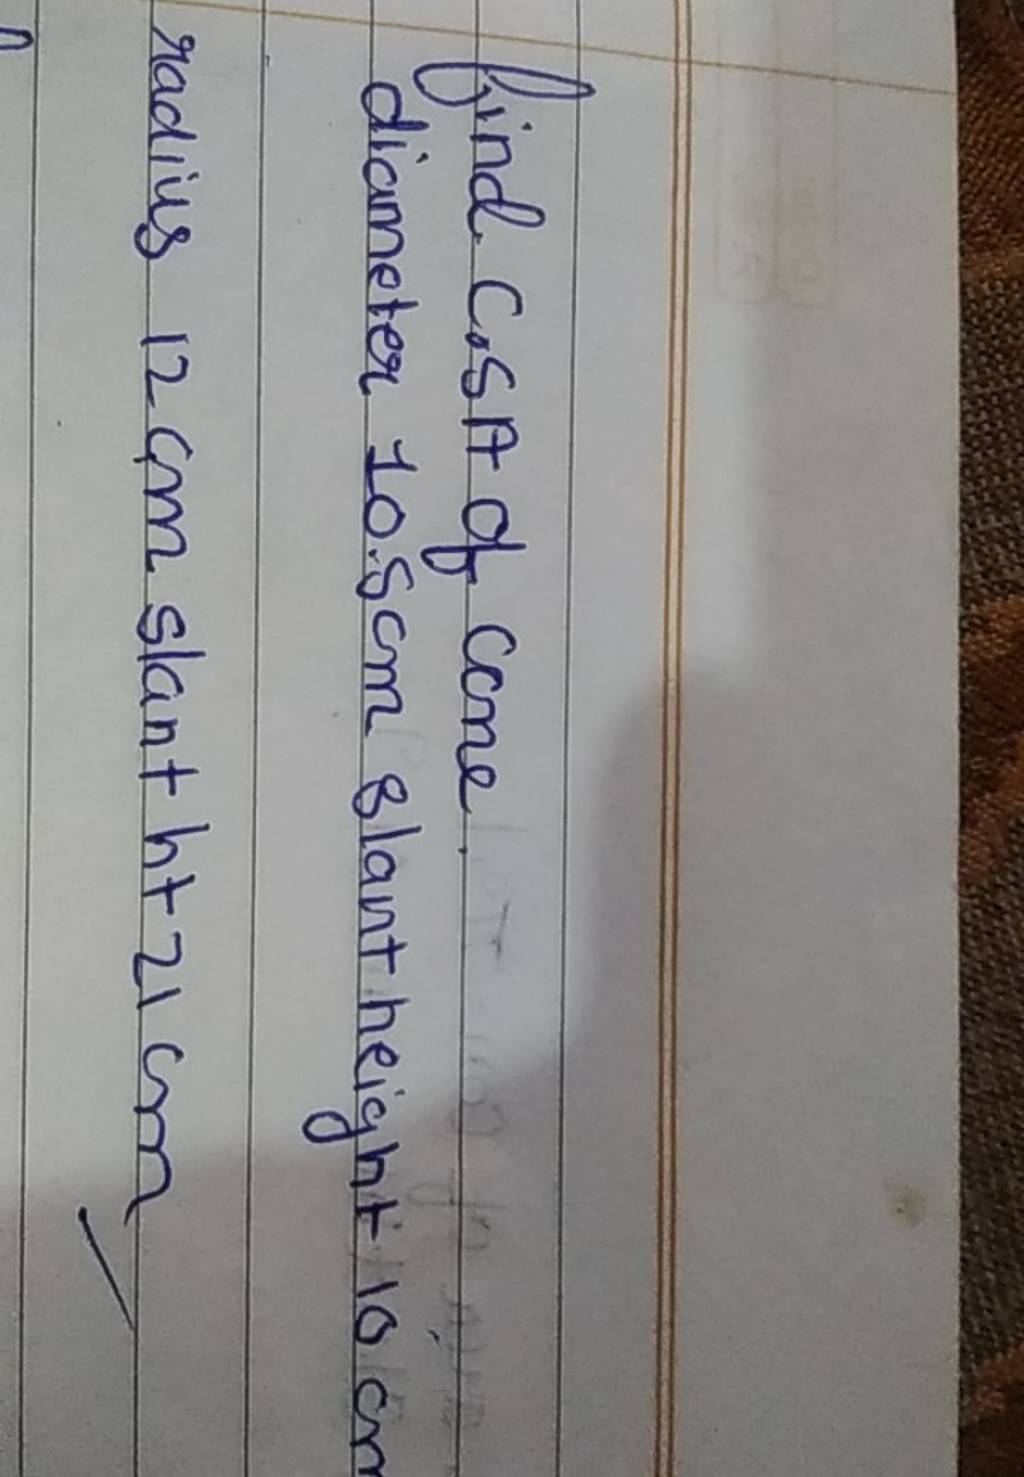 find C.SA of cone.
diameter 10.5cm slant height 10 cm
radius 12 cm slant ht 21 cm